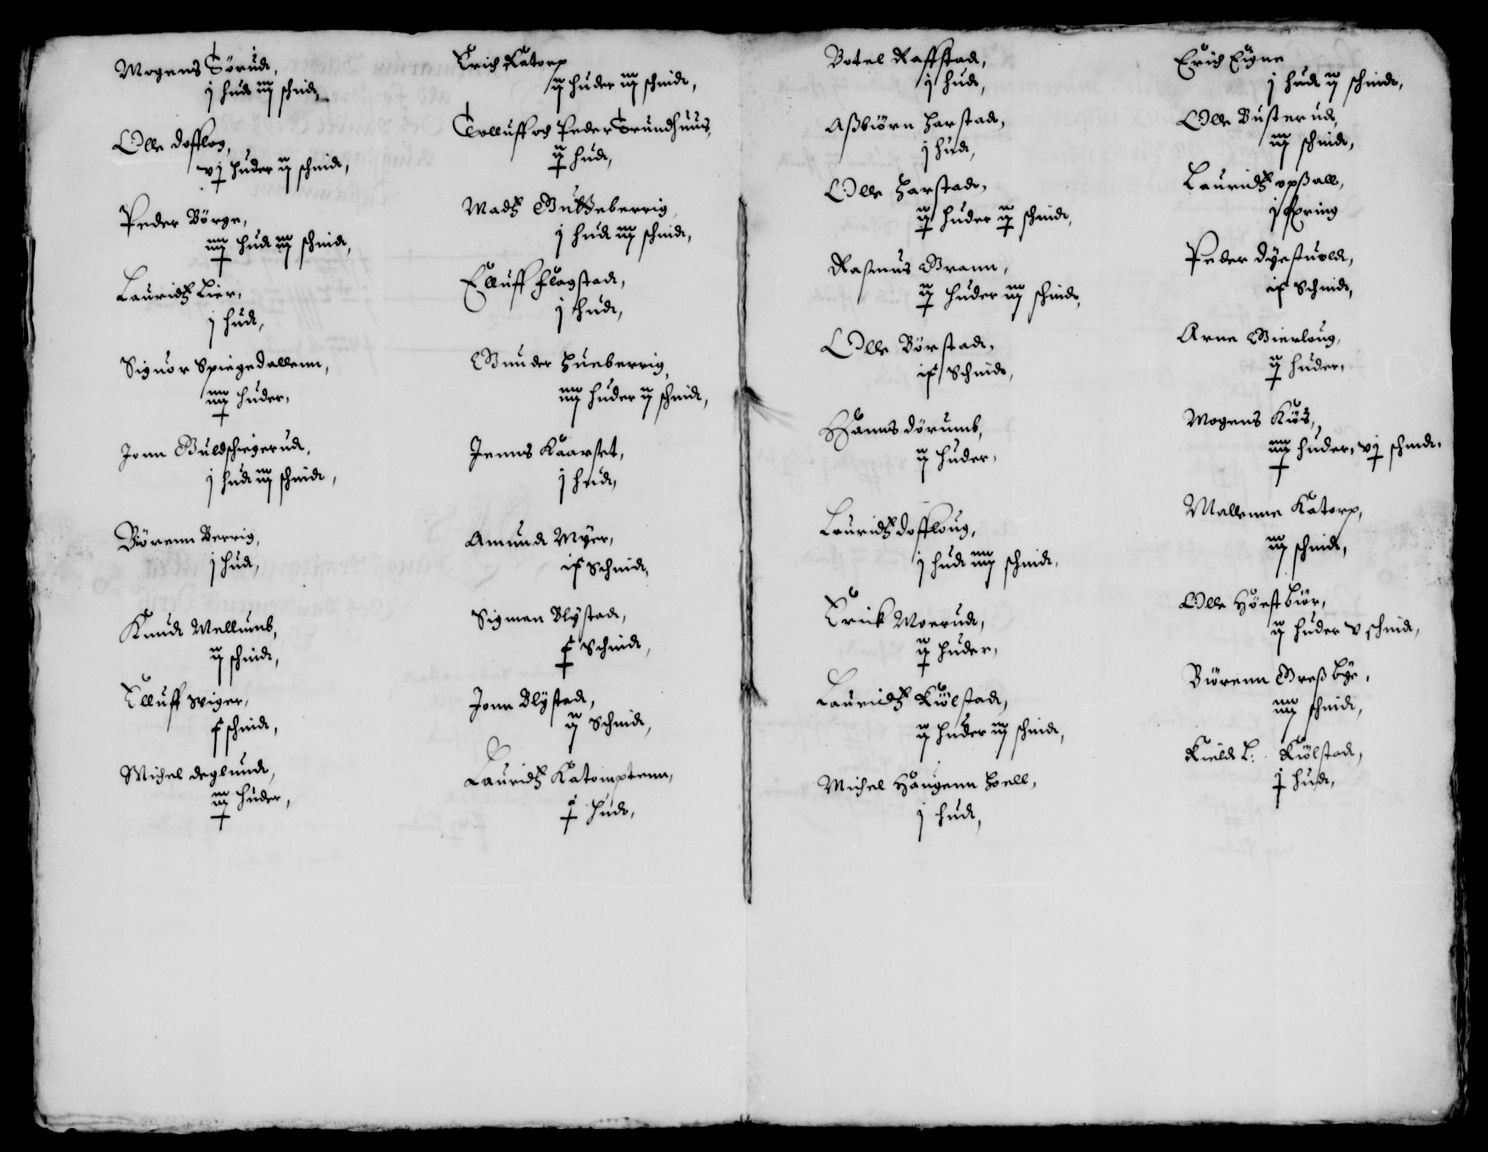 Mogens Sørud,
j hud iij schind,
Olle dofflog,
vj huder ij schind,
Peder Börge,
iiij hud iij schind,
Lauridtz Lier,
j hud,
Signor Spiegedallenn,
iiij huder,
Jonn Guldschegerud,
j hud iij schind,
Biörenn Berrig,
j hud,
Knud Mellumb,
ij schind,
Elluff Wiger,
schind,
Michel deglund,
iij huder,
Erich Katorp
ij huder iij schind,
Tolluff och Peder Trundhuus,
ij hud,
Madtz Gutteberrig,
j hud iij schind,
Elluff flagstad,
j hud,
Gunder Hueberrig,
iiij huder ij schind,
Jenns Kaarset,
j hud,
Amund Myer,
ix Schind,
Sigmen Blystad,
Schind,
Jonn Blystad,
ij Schind,
Lauridtz Katomptenn,
j hud,
Botel Raffstad,
j hud,
Aßbiörn Harstad,
j hud,
Olle Harstad,
ij huder ij schind,
Rasmus Grann,
ij huder iij schind,
Olle Börstad,
ix Schind,
Hanns dörumb,
ij huder,
Lauridtz doffloug,
j hud iiij schind,
Erick Moerud,
ij huder,
Lauridtz Kiölstad,
ij huder iij schind,
Michel Haugenn Hoell,
j hud,
Erich Eigne
j hud ij schind,
Olle Busterud,
iij schind,
Lauridtz opßall,
j fxring
Peder dyestuold,
ix Schind,
Arne Gierloug,
ij huder,
Mogens Kiös,
iiij huder, vj schind,
Mallenne Katorp,
iij schind,
Olle Höest Biör,
ij huder v schind,
Biörenn Greß Bye,
iiij schind,
Kield L. Kiölstad,
j hud,